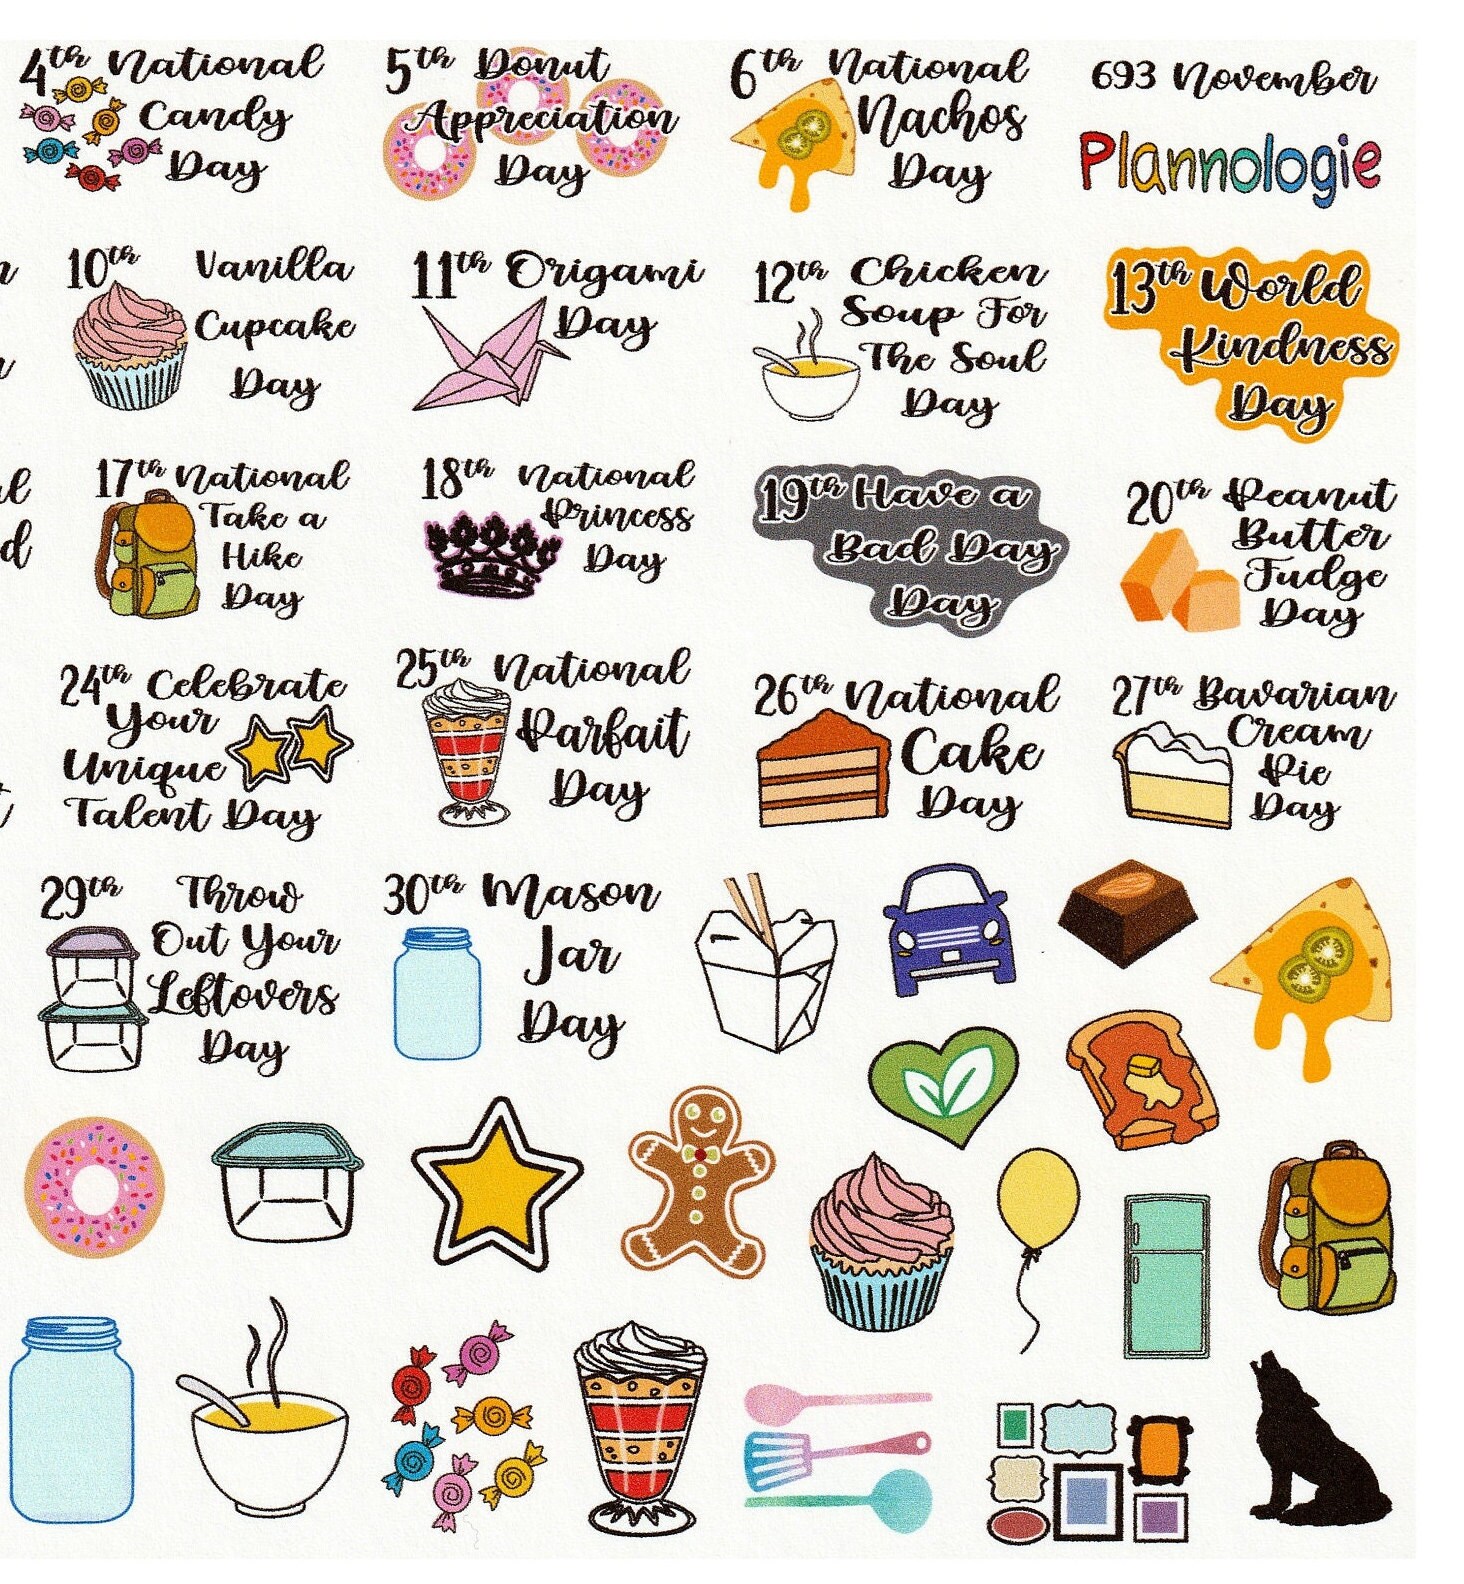 4th National
Candy
Day
5th Donut
Appreciation
Day
6th National
Nachos
Day
693 November
Plannologie
10th Vanilla
Cupcake
Day
11th Origami
Day
12th Chicken
Soup For
The Soul
Day
13th World
Kindness
Day
17th National
Take a
Hike
Day
18th National
Princess
Day
19th Have a
Bad Day
Day
20th Peanut
Butter
Fudge
Day
24th Celebrate
Your
Unique
Talent Day
25th National
Parfait
Day
26th National
Cake
Day
27th Bavarian
Cream
Pie
Day
29th Throw
Out Your
Leftovers
Day
30th Mason
Jar
Day